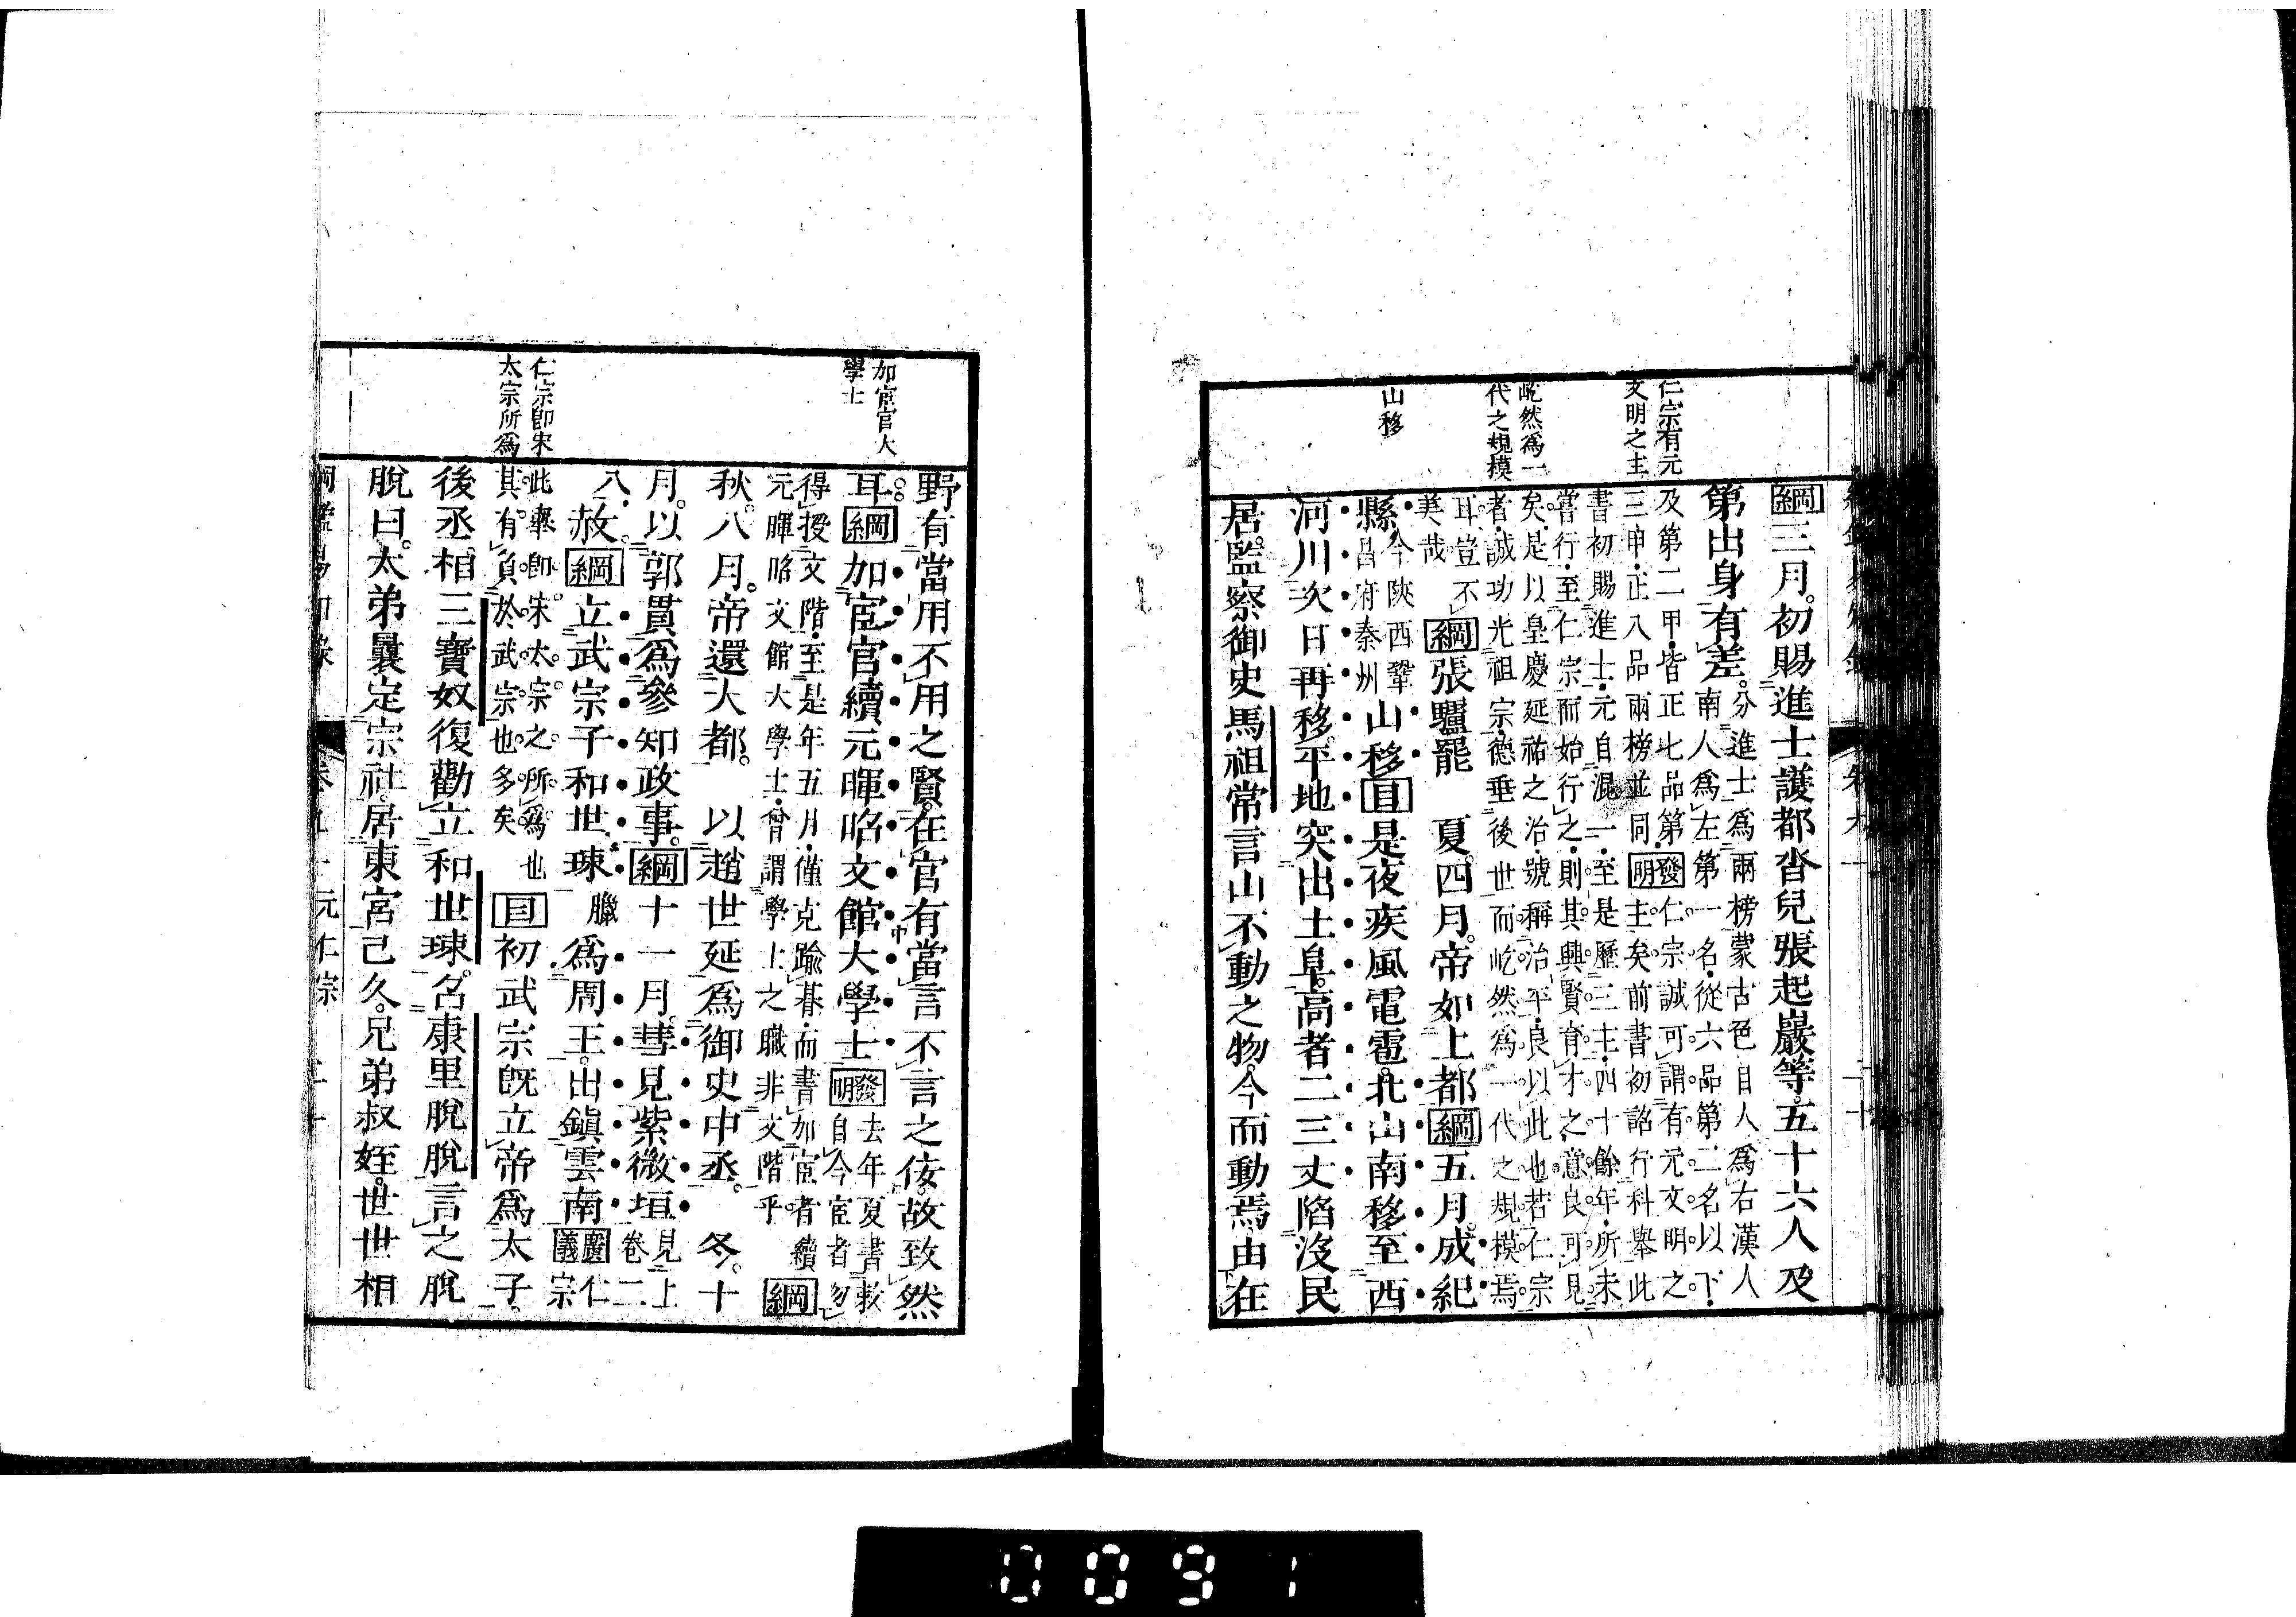 仁宗有元
文明之主
屹然爲一
代之規模
山移
綱三月。初賜進士護都沓兒張起巖等。五十六人及
第出身有差。
分進士爲兩榜蒙古色目人爲右漢人
南人爲左第一名從六品第二名以下
及第二甲皆正七品第
三甲正八品兩榜並同
發明
仁宗誠可謂有元文明之
主矣前書初詔行科舉此
書初賜進士元自混一至是歷三主四十餘年所未
當行至仁宗而始行之則其興賢育才之意良可見
矣是以皇慶延祐之治號稱治平良以此也若仁宗
者誠功光祖宗德垂後世而屹然爲一代之規模焉
耳豈不
美哉
綱張驢罷　夏四月。帝如上都綱五月。成紀
縣
今陝西鞏
昌府秦州
山移目是夜疾風電雹。北山南移至西
河川次日再移。平地突出土阜。高者二三丈陷沒民
居。監察御史馬祖常言山不動之物。今而動焉。由在
加宦官大
學士
仁宗卽宋
太宗所爲
野有當用不用之賢。在官有當言不言之佞。故致然
耳。綱加宦官續元暉昭文館大學士
發明
去年夏書敕
自今宦者勿
得授文階至是年五月僅克踰朞而書加宦者續
元暉昭文館大學士曾謂學士之職非文階乎
綱
秋。八月。帝還大都。　以趙世延爲御史中丞。　冬。十
月。以郭貫爲參知政事。綱十一月。彗見紫微垣
見上
卷二
八。赦。綱立武宗子和世㻋
臘
爲周王。出鎭雲南
廣義
仁
宗
此擧卽宋太宗之所爲也
其有負於武宗也多矣
目初武宗旣立帝爲太子。
後丞相三寶奴復勸立和世㻋。名康里脫脫言之脫
脫曰。太弟曩定宗社。居東宮已久。兄弟叔姪。世世相
元仁宗
0091